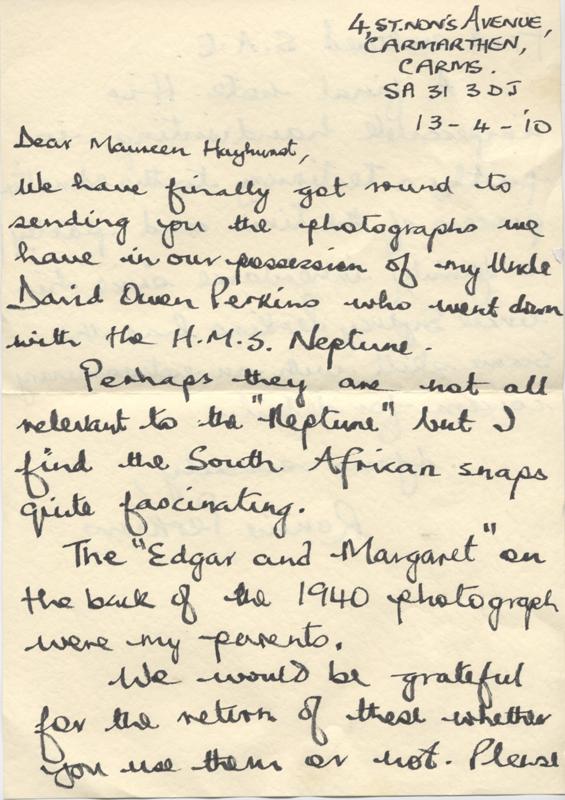 4, ST. NON'S AVENUE,
CARMARTHEN,
CARMS.
SA 31 3DJ
13-4-'10
Dear Maureen Hayhurst,
We have finally got round to
sending you the photographs we
have in our possession of my Uncle
David Owen Perkins who went down
with the H.M.S. Neptune.
Perhaps they are not all
relevant to the "Neptune" but I
find the South African snaps
quite fascinating.
The "Edgar and Margaret" on
the back of the 1940 photograph
were my parents.
We would be grateful
for the return of these whether
you use them or not. Please